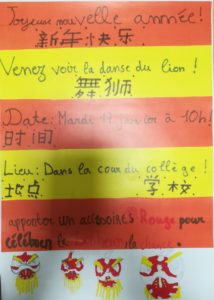 Joyeuse nouvelle année!
新年快乐
Venez voir la danse du lion!
舞狮
Date: Mardi 11 janvier à 10h!
时间
Lieu: Dans la cour du collège!
地点 学校
apporter un accessoires Rouge pour
célébrer le la chance.